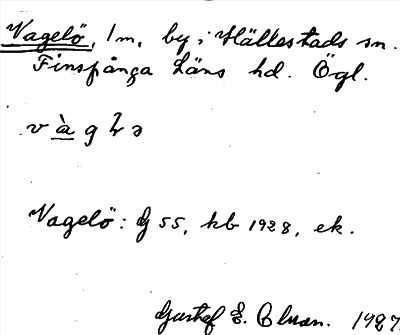 Vagelö, 1 m, by i Hällestads sn.
Finspånga Läns hd. Ögl.
Vagelö: G 55, kb 1928, ek.
Gustaf E. 1927